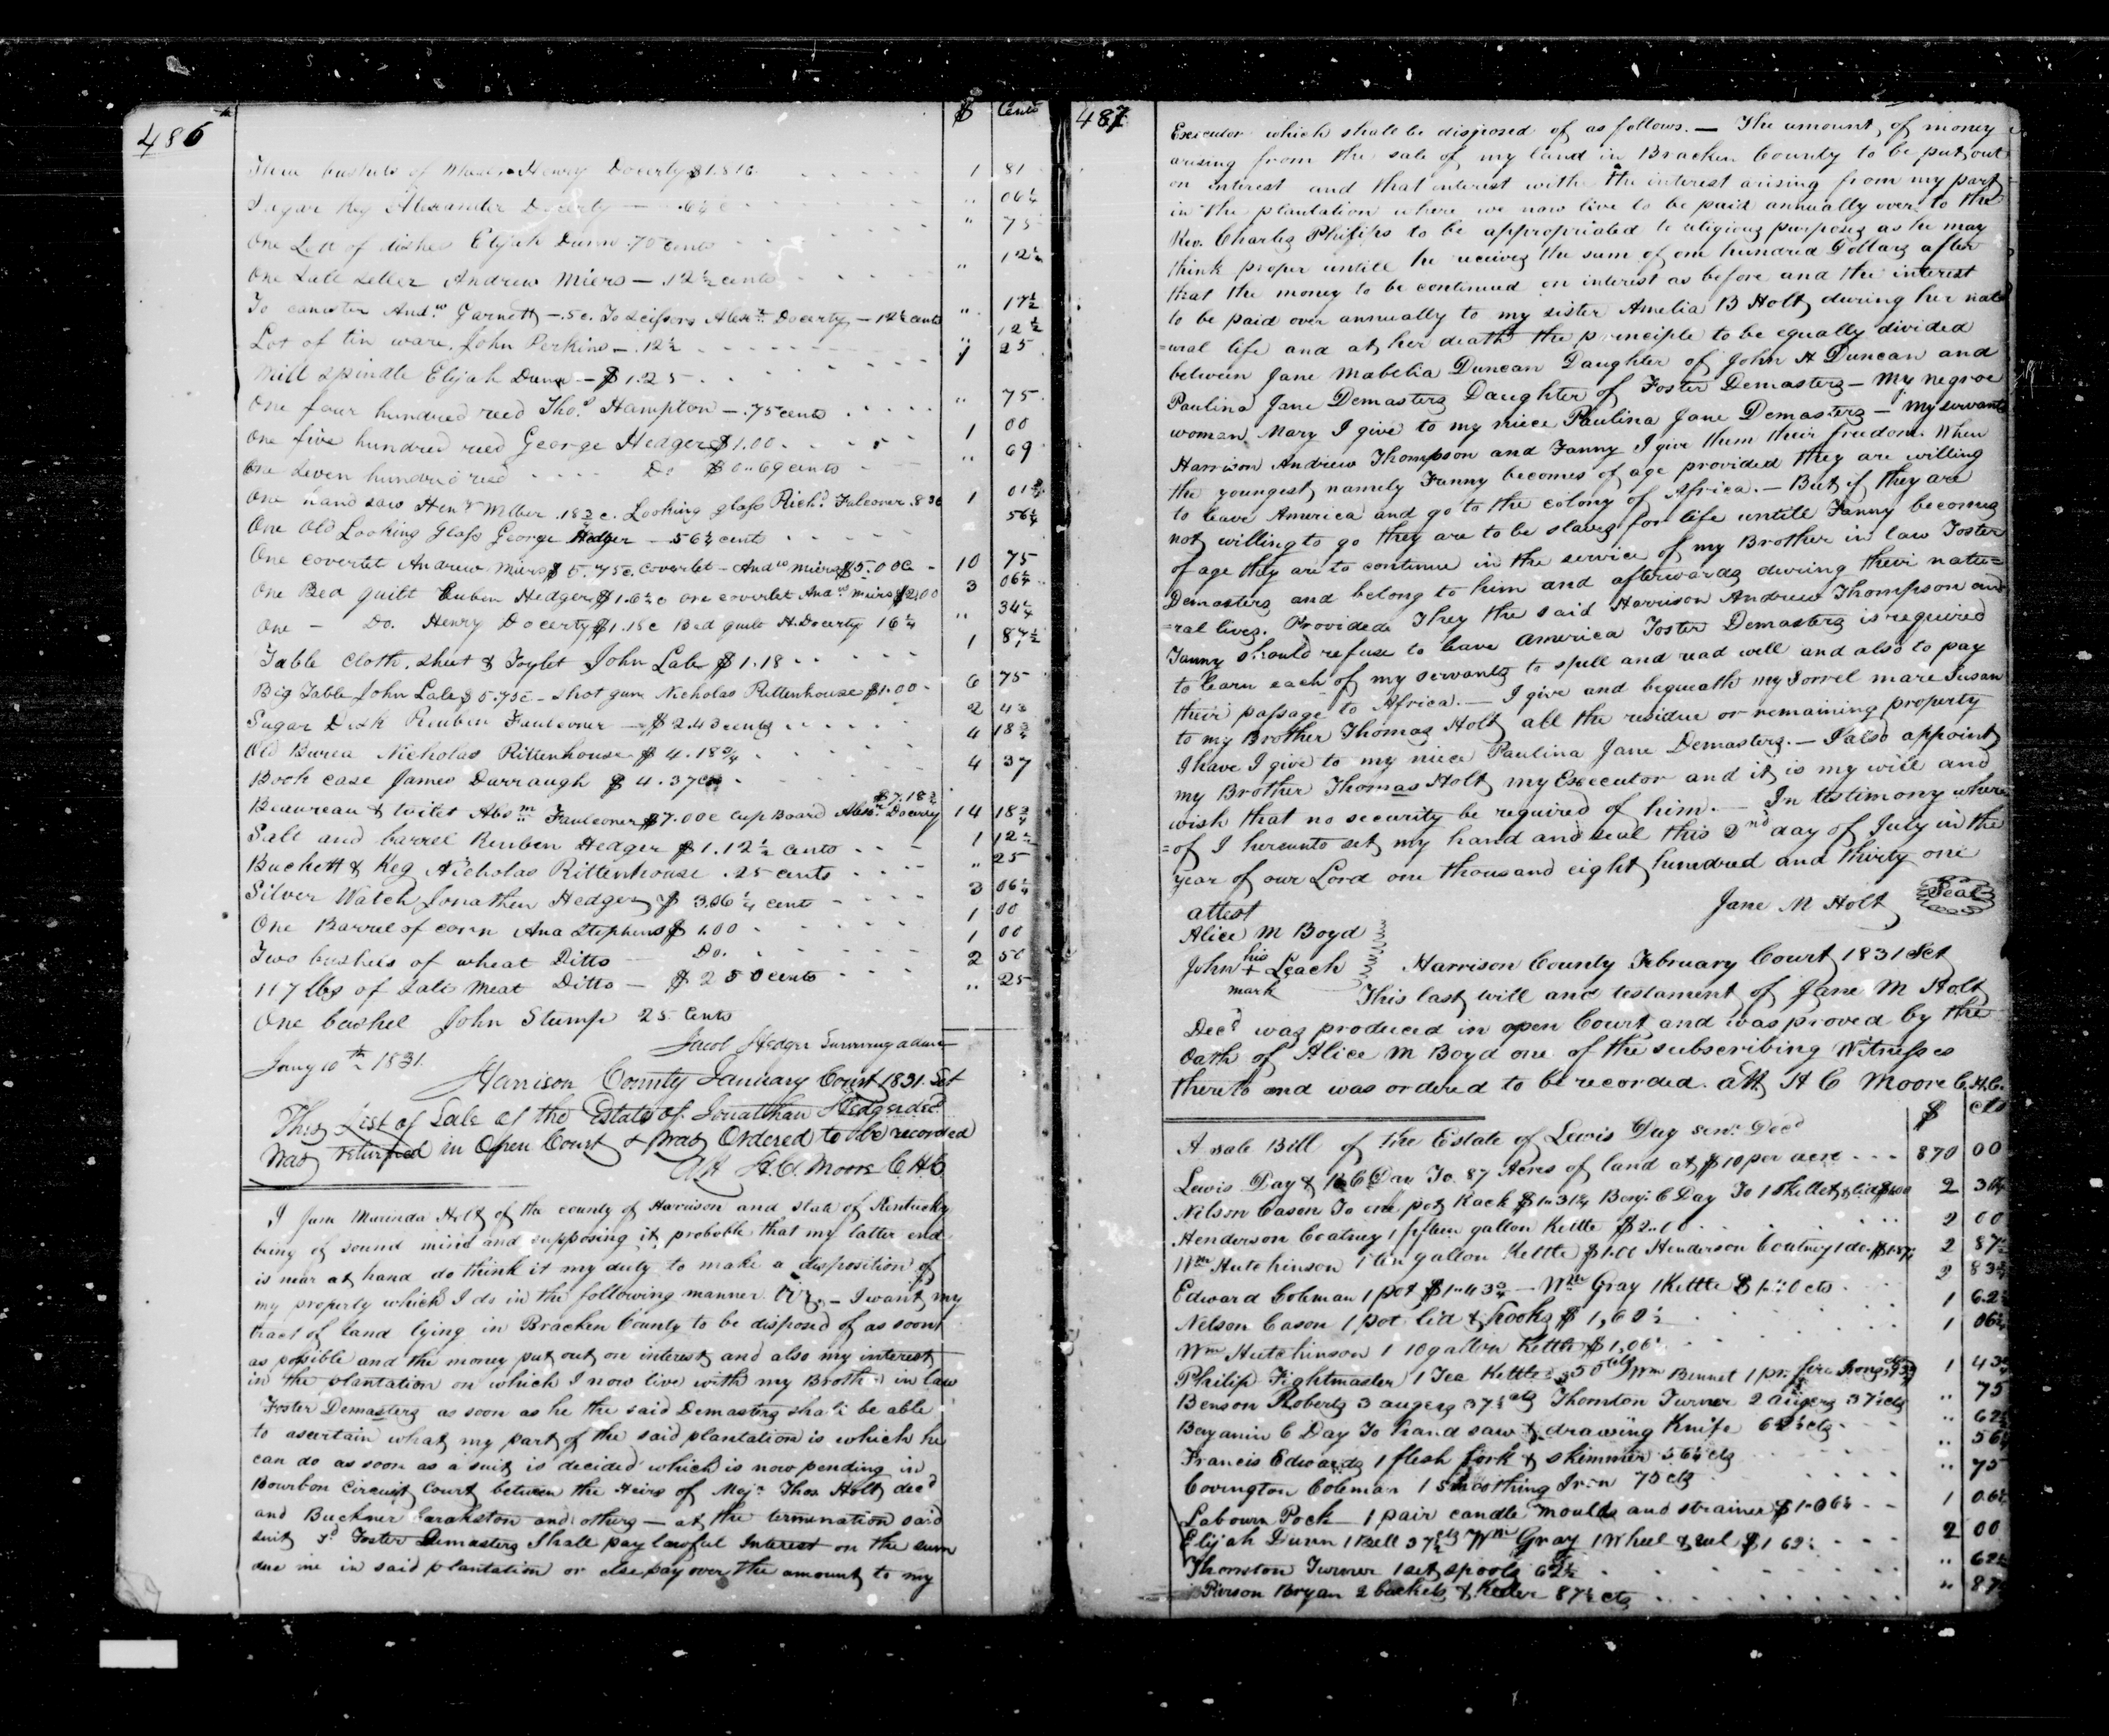 486
$ Cents
Three bushels of Henry Docerty $1.81c 1 81
Sugar Keg Alexander Docerty — .6¼ c " 06¼
One Lott of dishes Elijah Dunn .75 cents " 75
One Salt Seller Andrew Miers — .12½ cents " 12½
To canester And.w Garnett — .5c. To Scissors Alex.r Docerty — 12½ cents " 17½
Lot of tin ware. John Perkins — .12½ 12½
Mill spindle Elijah Dunn — $1.25 1 25
One four hundred reed Tho.s Hampton — .75 cents " 75
One five hundred reed George Hedger $1.00 1 00
One Seven hundred reed Do $0..69 cents " 69
One hand saw Hen.y Miller .18¾ c. Looking glass Rich.d Falconer .83c 1 01¾
One Old Looking Glass George Hedger — 56¼ cents 56¼
One coverlet Andrew Miers $5.75c. Coverlet — And.w Miers $5.00c 10 75
One Bed quilt Reuben Hedger $1.6¼ c one coverlet And.w Miers $2.00 3 06¼
One — Do. Henry Docerty $1.18c Bed quilt H. Docerty 16¼ " 34¼
Table cloth, sheet & Toylet John Lale $1.18 1 87½
Big Table John Lale $5.75c — Shot gun Nicholas Rittenhouse $1.00 6 75
Sugar Desk Reuben Faulconer — $2.43 cents 2 43
Old Burea Nicholas Rittenhouse $4.18¾ 4 18¾
Book case James Durraugh $4.37cts 4 37
Beaureau & toilet Abs.m Faulconer $7.00c Cup Board Alex.r Docerty $7.18¾ 14 18¾
Salt and barrel Reuben Hedger $1.12½ cents 1 12½
Buckett & Keg Nicholas Rittenhouse .25 cents " 25
Silver Watch Jonathan Hedger $3.06¼ cents 3 06¼
One Barrel of corn Ana Stephens $1.00 1 00
Two bushels of wheat Ditto — Do. 1 00
117 lbs of Salt Meat Ditto — $2 50 cents 2 50
One bushel John Stump 25 Cents " 25
Jacob Hedger Surviving admr
Jany 10th 1831.
Harrison County January Court 1831. Set
This List of Sale of the Estate of Jonathan Hedger decd
Was returned in Open Court & Was Ordered to be recorded
Att H. C. Moore C.H.C.
I Jane Marinda Holt of the county of Harrison and state of Kentucky
being of sound mind and supposing it probable that my latter end
is near at hand do think it my duty to make a disposition of
my property which I do in the following manner Viz. — I want my
tract of land lying in Bracken County to be disposed of as soon
as possible and the money put out on interest, and also my interest
in the plantation on which I now live with my Brother in law
Foster Demasters as soon as he the said Demasters shall be able
to ascertain what my part of the said plantation is which he
can do as soon as a suit is decided which is now pending in
Bourbon Circuit Court between the Heirs of Majr Thos Holt decd
and Buckner and others — at the termination said
suit sd Foster Demasters Shall pay lawful Interest on the sum
due me in said plantation or else pay over the amount to my
487
Executor which shall be disposed of as follows. — The amount of money
arising from the sale of my land in Bracken County to be put out
on interest and that interest with the interest arising from my part
in the plantation where we now live to be paid annually over to the
Rev. Charles Philips to be appropriated to religious purposes as he may
think proper untill he receives the sum of one hundred Dollars after
that the money to be continued on interest as before and the interest
to be paid over annually to my sister Amelia B Holt during her nat
=ural life and at her death the principle to be equally divided
between Jane Mabelia Duncan Daughter of John H Duncan and
Paulina Jane Demasters Daughter of Foster Demasters — My negroe
woman Mary I give to my niece Paulina Jane Demasters — My servants
Harrison Andrew Thompson and Fanny I give them their freedom. When
the youngest, namely Fanny becomes of age provided they are willing
to leave America and go to the colony of Africa. — But if they are
not willing to go they are to be slaves for life untill Fanny becomes
of age they are to continue in the service of my Brother in law Foster
Demasters and belong to him and afterwards during their natu=
=ral lives. Provided They the said Harrison Andrew Thompson and
Fanny should refuse to leave America Foster Demasters is required
to learn each of my servants to spell and read well and also to pay
their passage to Africa. — I give and bequeath my Sorrel mare Susan
to my Brother Thomas Holt all the residue or remaining property
I have I give to my niece Paulina Jane Demasters. — I also appoint
my Brother Thomas Holt my Executor and it is my will and
wish that no security be required of him. — In testimony where
=of I hereunto set my hand and seal this 2nd day of July in the
year of our Lord one thousand eight hundred and thirty one
Jane M Holt Seal
attest
Alice M Boyd
John his + mark Leach
Harrison County February Court 1831 Set
This last will and testament of Jane M Holt
Decd was produced in open Court and was proved by the
Oath of Alice M Boyd one of the subscribing Witnesses
thereto and was ordered to be recorded. Att H C Moore C.H.C.
$ cts
A sale Bill of the Estate of Lewis Day senr. Decd
Lewis Day & B C Day To 87 Acres of land at $10 per acre 870 00
Nelson Cason To one pot Rack $1..31¼ Benj. C Day To 1 Skillet & lid $1.00 2 31¼
Henderson Coatney 1 fifteen gallon Kettle $2..00 2 00
Wm Hutchinson 1 ten gallon Kettle $1.00 Henderson Coatney 1 do. $1.87½ 2 87½
Edward Coleman 1 pot $1..43¾ — Wm Gray 1 Kettle $1..40 cts 2 83¾
Nelson Cason 1 pot lid & hooks $1,62½ 1 62½
Wm Hutchinson 1 10 gallon Kettle $1,06¼ 1 06¼
Philip Fightmaster 1 Tea Kettle ,50 cts Wm Bennet 1 pr. fire Irons 93¾ 1 43¾
Benson Roberts 3 augers 37½ cts Thornton Turner 2 augers 37½ cts " 75
Benjamin C Day To hand saw & drawing Knife 62½ cts " 62½
Francis Edwards 1 flesh fork & skimmer 56¼ cts " 56¼
Covington Coleman 1 Smoothing Iron 75 cts " 75
Labourn Pock — 1 pair candle moulds and strainer $1..06¼ 1 06¼
Elijah Dunn 1 Bell 37½ cts Wm Gray 1 Wheel & reel $1 62½ 2 00
Thornton Turner 1 set spools 62½ " 62½
Pierson Bryan 2 buckets & Keeler 87½ cts " 87½